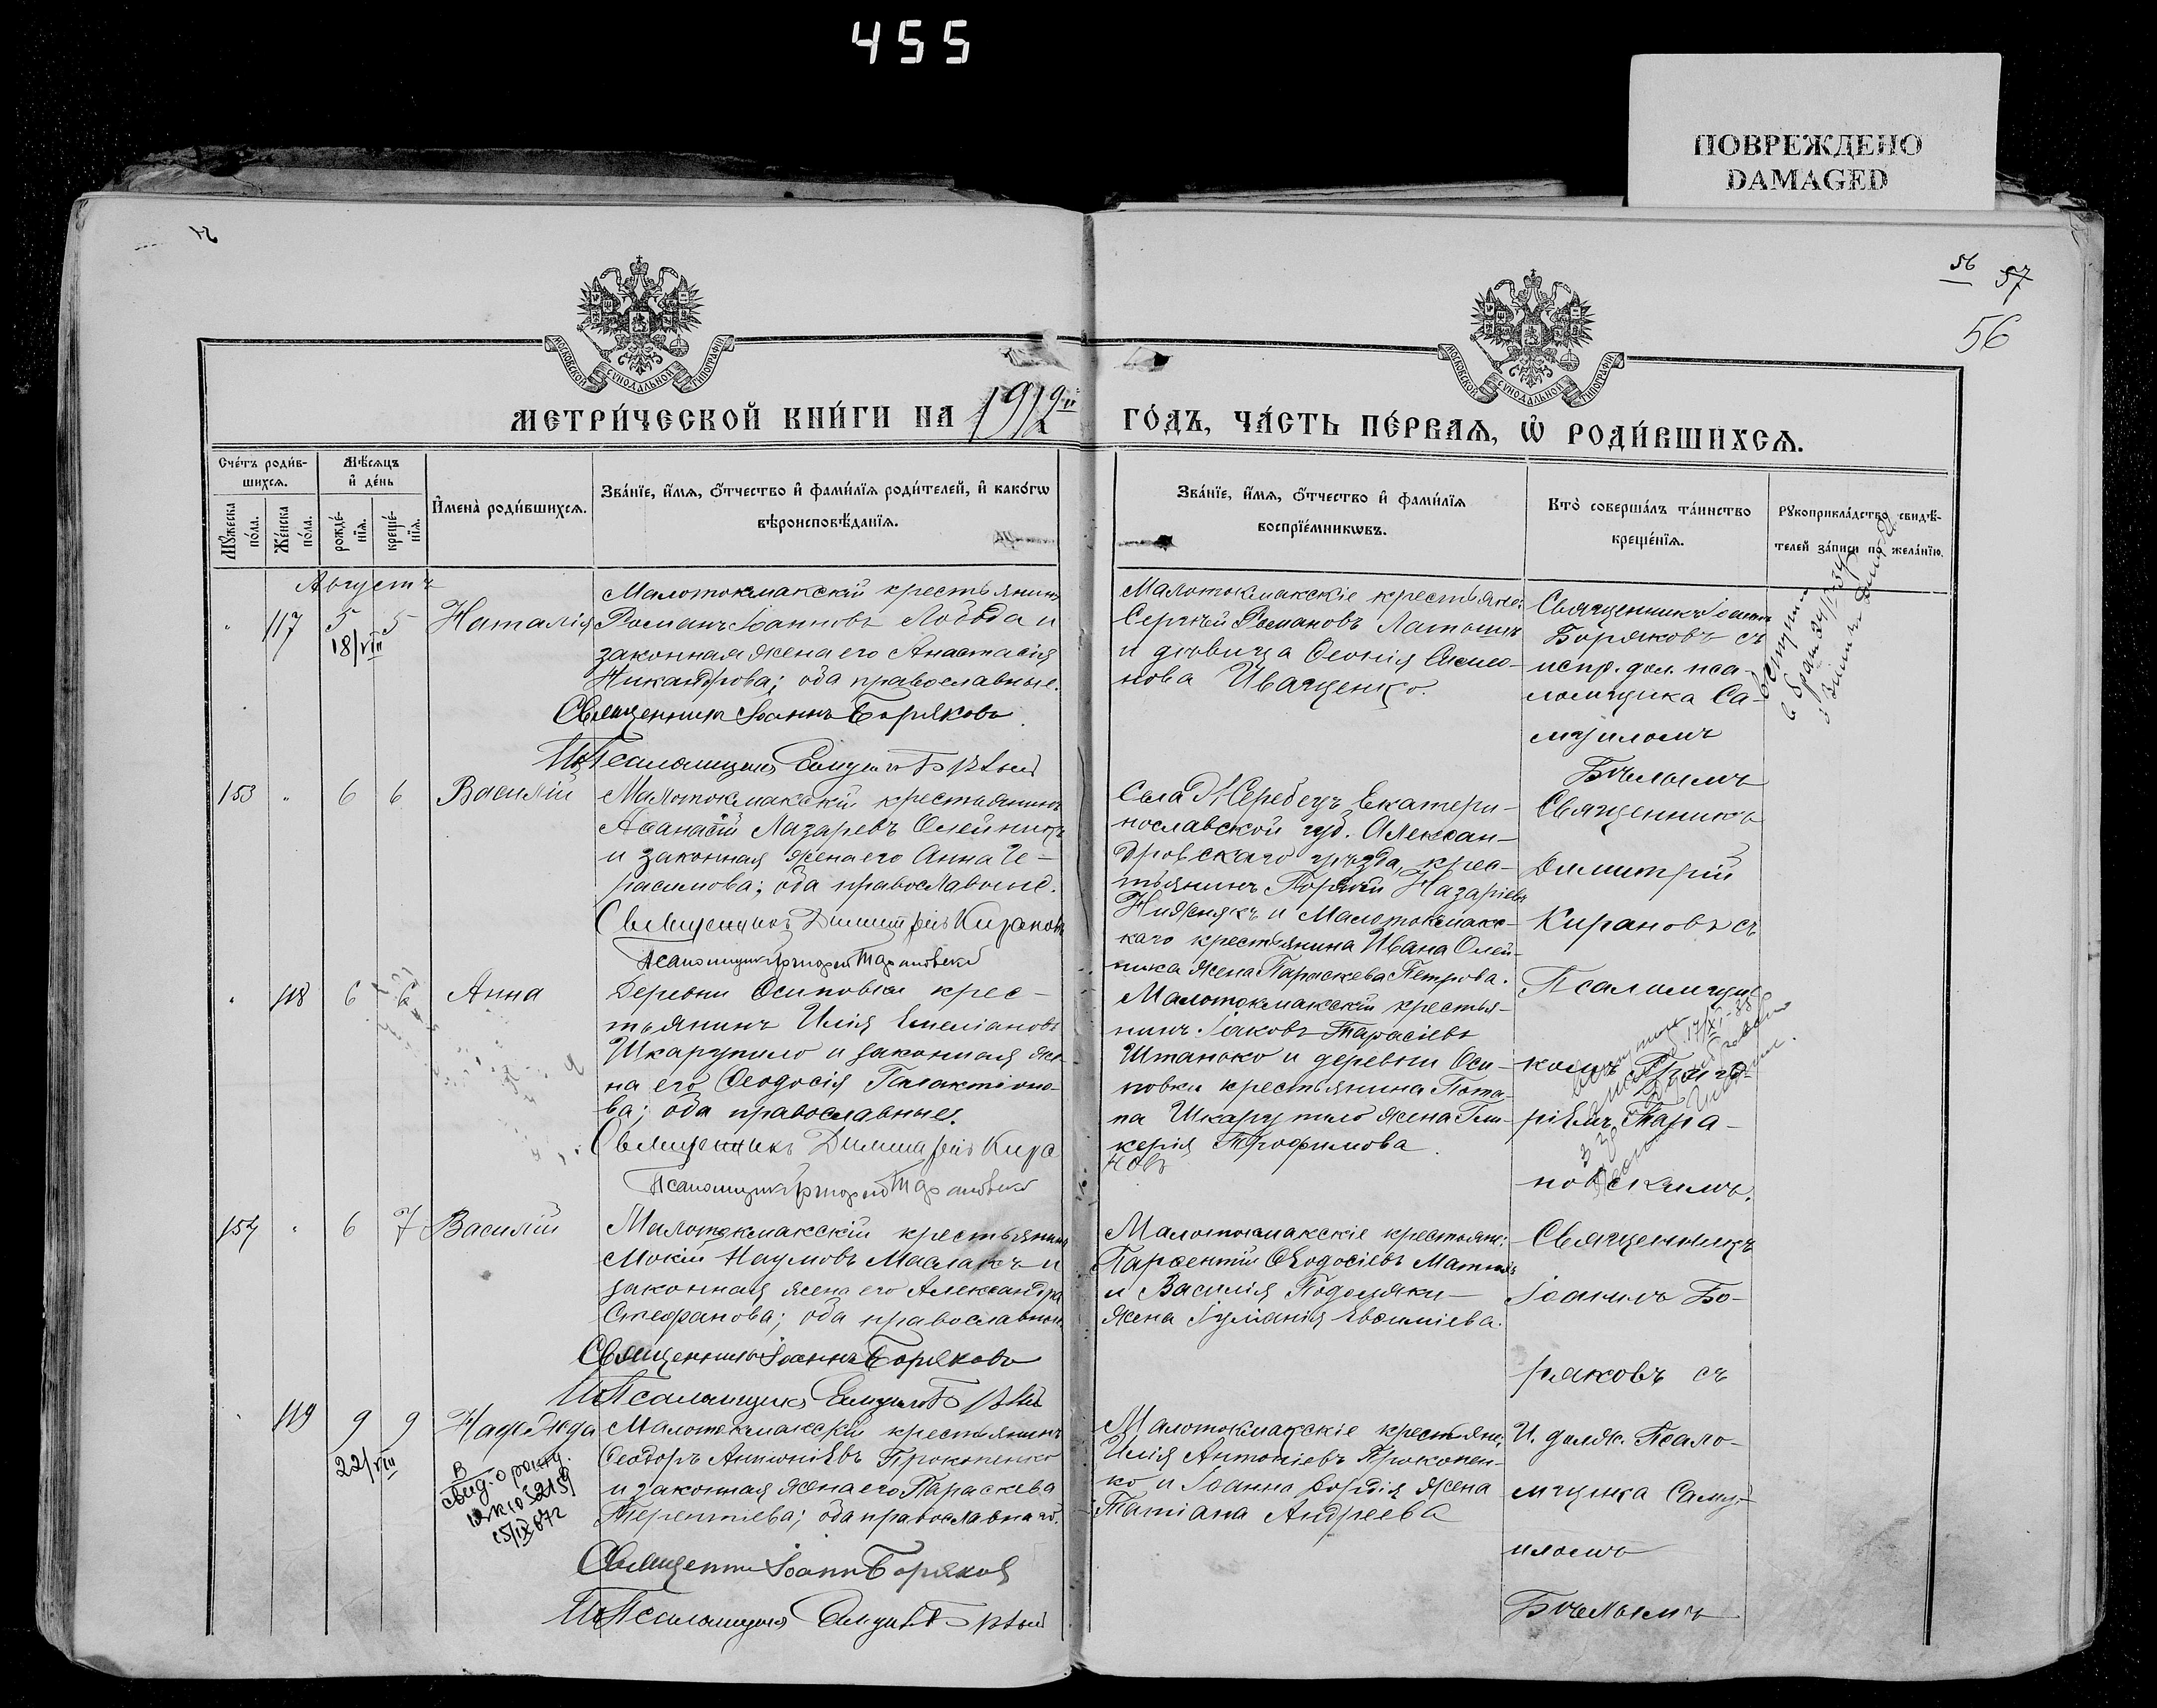 455
ПОВРЕЖДЕНО
DAMAGED
56 57
56
МОСКОВСКОЙ СѴНОДАЛЬНОЙ ТИПОГРАФІИ
МОСКОВСКОЙ СѴНОДАЛЬНОЙ ТИПОГРАФІИ
МЕТРИ́ЧЕСКОЙ КНИ́ГИ НА 1912й ГО́ДЪ, ЧА́СТЬ ПЕ́РВАѦ, Ѡ҆ РОДИ́ВШИХСѦ.
Сче́тъ роди́вшихсѧ.
Мꙋ́жеска по́ла.
Же́нска по́ла.
Мѣ́сѧцъ и҆ де́нь
рожде́нїѧ.
креще́нїѧ.
И҆мена̀ роди́вшихсѧ.
Зва́нїе, и҆́мѧ, ѻ҆́тчество и҆ фами́лїѧ роди́телей, и҆ како́гѡ
вѣроисповѣ́данїѧ.
Зва́нїе, и҆́мѧ, ѻ҆́тчество и҆ фами́лїѧ
воспрїе́мникѡвъ.
Кто̀ соверша́лъ та́инство
креще́нїѧ.
Рꙋкоприкла́дство свидѣ́телей за́писи по жела́нїю.
Августъ
117 5 5 Наталія
18/VIII
Малотокмакскій крестьянинъ
Романъ Іоанновъ Лобода и
законная жена его Анастасія
Никандрова; оба православные.
Священникъ Іоаннъ Боряковъ
И. Псаломщика
Малотокмакскіе крестьяне:
Сергѣй Романовъ
и дѣвица Ѳеонія Симо-
нова Иващенко.
Священникъ Іоаннъ
Боряковъ съ
испр. дол. пса-
ломщика Са-
муиломъ
Бѣлымъ
вступил
в брак
153 6 6 Василій
Малотокмакскій крестьянинъ
Аѳанасій Лазаревъ Олейникъ
и законная жена его Анна Ге-
расимова; оба православные.
Священникъ Димитрій Кирановъ
Псаломщикъ Григорій Тарановскій
Села Жеребецъ Екатери-
нославской губ. Алексан-
дровскаго уѣзда, крес-
тьянинъ Назаріевъ
Нижникъ и Малотокмакс-
каго крестьянина Ивана Олей-
ника жена Параскева Петрова.
Священникъ
Димитрій
Кирановъ съ
Псаломщи-
118 6 6 Анна
Деревни Осиповки крес-
тьянинъ Илія Емеліановъ
Шкарупило и законная же-
на его Ѳеодосія Галактіоно-
ва; оба православные.
Священникъ Димитрій Кира
новъ
Псаломщикъ Григорій Тарановскій
Малотокмакскій крестья-
нинъ Іаковъ Тарасіевъ
Штанько и деревни Оси-
повки крестьянина Пота-
па Шкарупило жена Гли-
керія Трофимова.
комъ Григо-
ріемъ Тара-
новскимъ.
17/XI-35
154 6 7 Василій
Малотокмакскій крестьянинъ
Мокій Наумовъ Маслакъ и
законная жена его Александра
Стефанова; оба православные
Священникъ Іоаннъ Боряковъ
И. Псаломщика
Малотокмакскіе крестьяне:
Парѳентій Ѳеодосіевъ
и Василія
жена Іуліанія Евѳиміева.
Священникъ
Іоаннъ Бо-
ряковъ съ
119 9 9 Надежда
22/VIII
В
свид. о рожд.
15/IX
Малотокмакскій крестьянинъ
Ѳеодоръ Антоніевъ Прокопенко
и законная жена его Параскева
Терентіева; оба православные.
Священникъ Іоаннъ Боряковъ
И. Псаломщика
Малотокмакскіе крестьяне:
Илія Антоніевъ Прокопен-
ко и Іоанна жена
Татіана Андреева
И. долж. Псало-
мщика Саму-
иломъ
Бѣлымъ